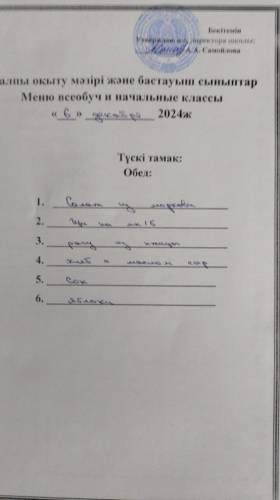 Бекітемін
Утверждаю и.о. директора школы:
А.А. Самойлова
алпы оқыту мәзірі және бастауыш сыныптар
Меню всеобуч и начальные классы
« 6 » декабря 2024ж
Түскі тамақ:
Обед:
1. Салат из моркови
2.
3. рагу из птицы
4. хлеб с маслом сыр
5. Сок
6. яблоки